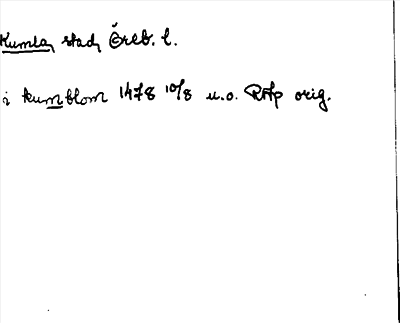 Kumla, stad, Öreb. l.
i kumblom 1478 10/8 u.o. RAp orig.